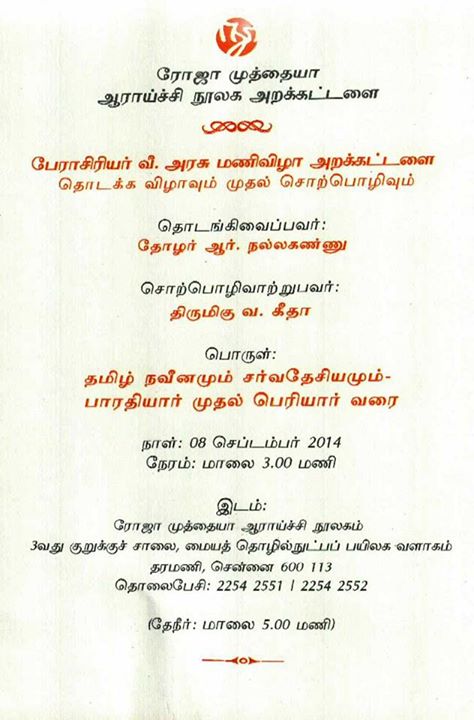 ரோஜா முத்தையா
ஆராய்ச்சி நூலக அறக்கட்டளை
பேராசிரியர் வீ. அரசு மணிவிழா அறக்கட்டளை
தொடக்க விழாவும் முதல் சொற்பொழிவும்
தொடங்கிவைப்பவர்:
தோழர் ஆர். நல்லகண்ணு
சொற்பொழிவாற்றுபவர்:
திருமிகு வ. கீதா
பொருள்:
தமிழ் நவீனமும் சர்வதேசியமும்-
பாரதியார் முதல் பெரியார் வரை
நாள்: 08 செப்டம்பர் 2014
நேரம்: மாலை 3.00 மணி
இடம்:
ரோஜா முத்தையா ஆராய்ச்சி நூலகம்
3வது குறுக்குச் சாலை, மையத் தொழில்நுட்பப் பயிலக வளாகம்
தரமணி, சென்னை 600 113
தொலைபேசி: 2254 2551 | 2254 2552
(தேநீர்: மாலை 5.00 மணி)